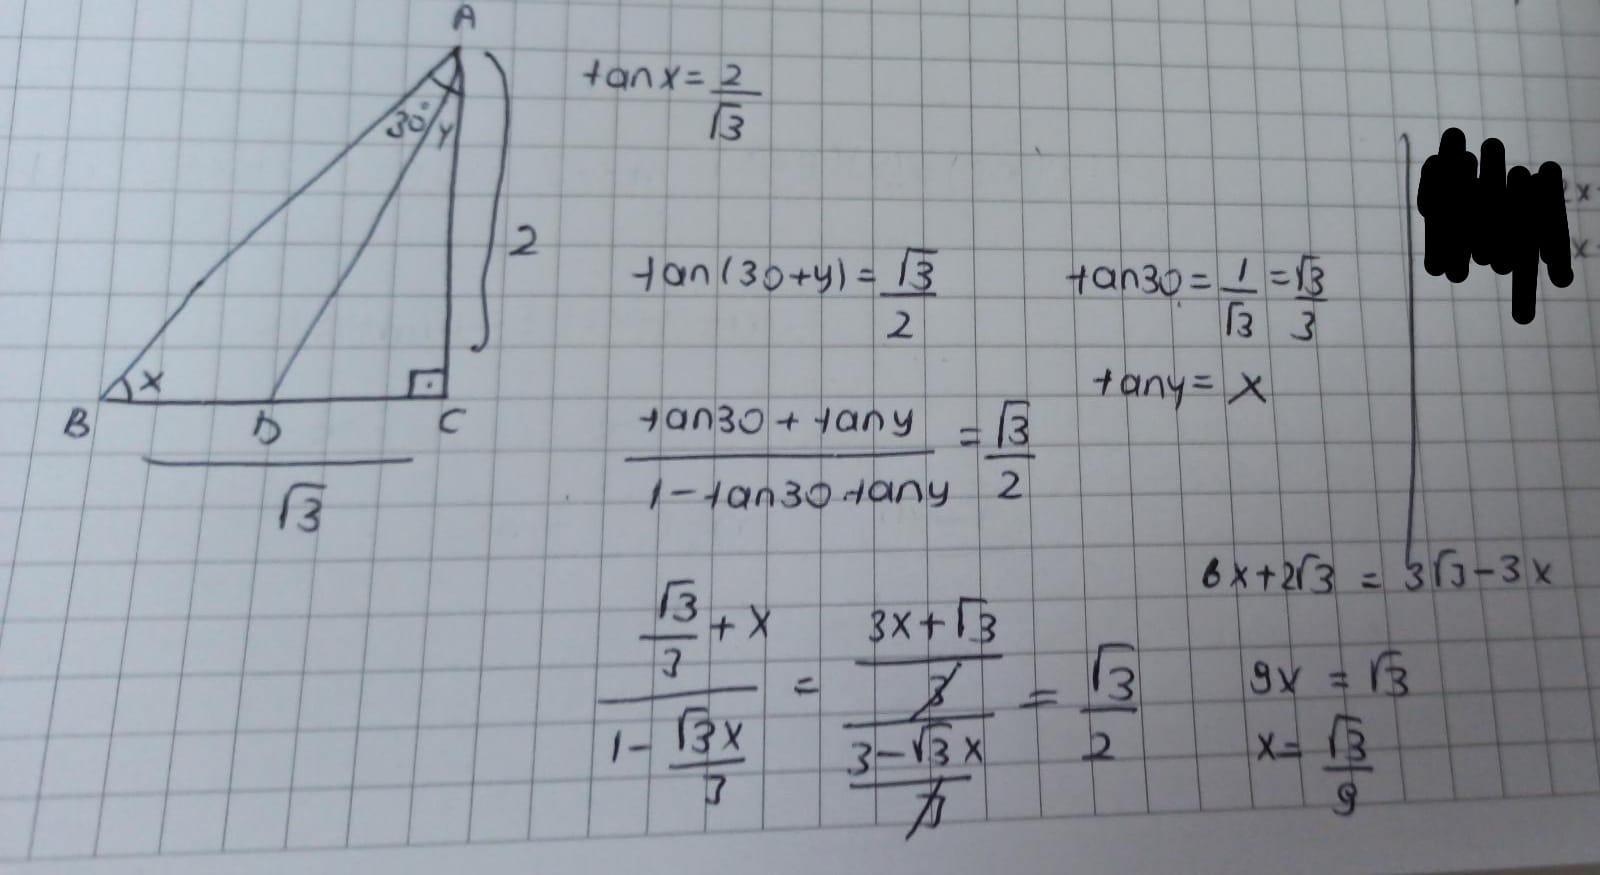 A
30° y
2
x
B D C
√3
tanx = 2/√3
tan(30+y) = √3/2
tan30 = 1/√3 = √3/3
tany = x
(tan30 + tany)/(1 - tan30 . tany) = √3/2
(√3/3 + x)/(1 - √3x/3) = ((3x + √3)/3)/((3 - √3x)/3) = √3/2
6x + 2√3 = 3√3 - 3x
9x = √3
x = √3/9